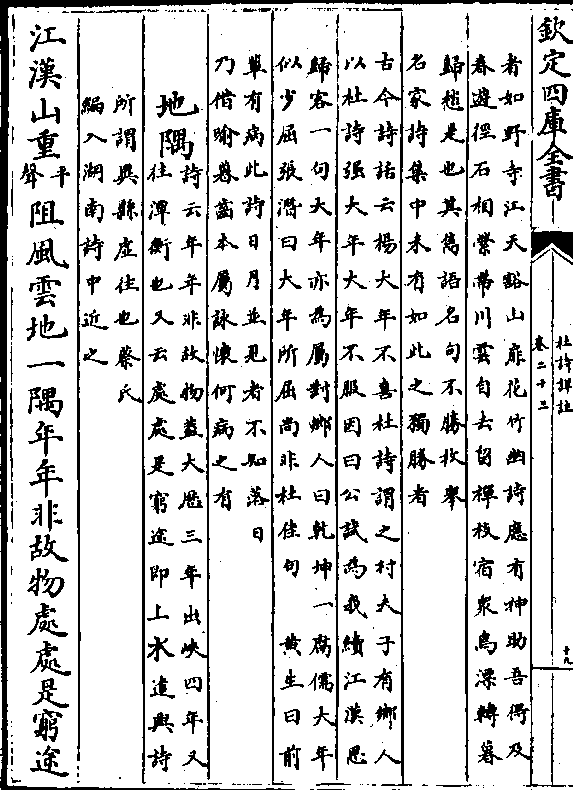 欽定四庫全書
杜詩詳註
卷二十三
十九
者如野寺江天豁山扉花竹幽詩應有神助吾得及
春遊徑石相縈帶川雲自去留禪枝宿衆鳥漂轉暮
歸愁是也其雋語名句不勝枚舉
名家詩集中未有如此之獨勝者
古今詩話云楊大年不喜杜詩謂之村夫子有鄉人
以杜詩强大年大年不服因曰公試為我續江漢思
歸客一句大年亦為屬對鄉人曰乾坤一腐儒大年
似少屈張潛曰大年所屈尚非杜佳句　黄生曰前
輩有病此詩日月並見者不知落日
乃借喻暮齒本屬詠懷何病之有
地隅
詩云年年非故物蓋大厯三年出峽四年又
往潭衡也又云處處是窮途即上水遣興詩
所謂異縣虛往也蔡氏
編入湖南詩中近之
江漢山重平聲阻風雲地一隅年年非故物處處是窮途